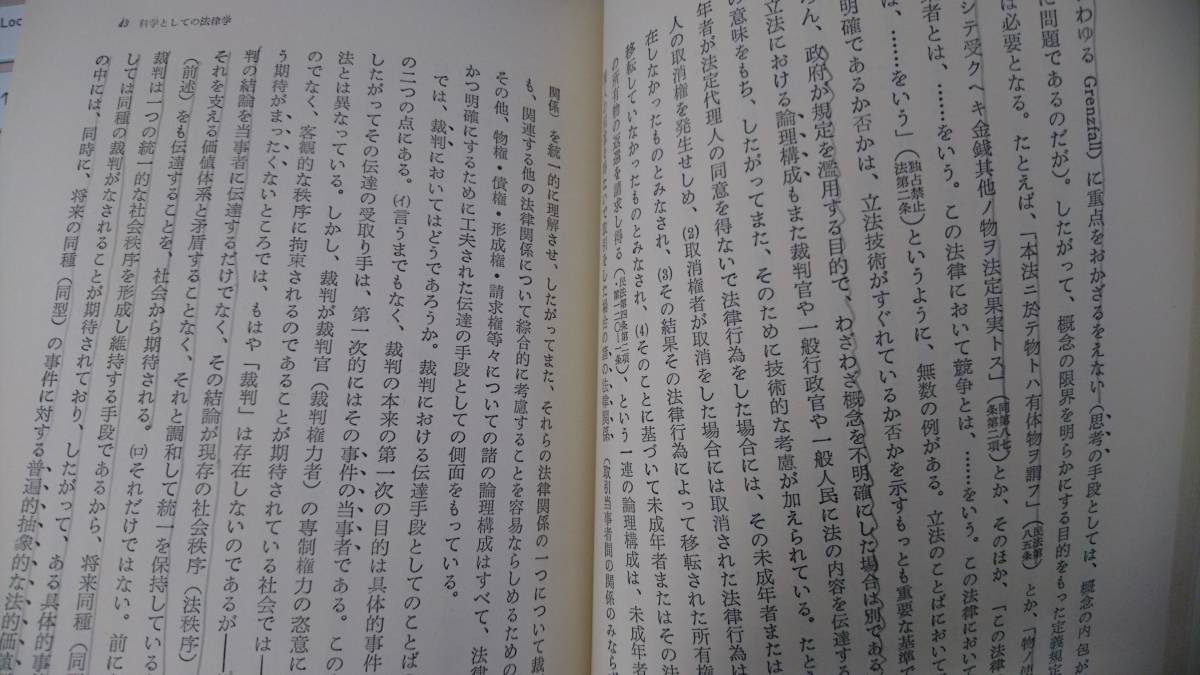 わゆる Grenzfall) に重点をおかざるをえない――(思考の手段としては、概念の内包が
に問題であるのだが)。したがって、概念の限界を明らかにする目的をもった定義規定
は必要となる。たとえば、「本法ニ於テ物トハ有体物ヲ謂フ」(民法第八五条) とか、「物ノ使
シテ受クヘキ金銭其他ノ物ヲ法定果実トス」(同第八七条第二項) とか、そのほか、「この法律
者とは、……をいう。この法律において競争とは、……をいう。この法律におい
は、……をいう」(独占禁止法第二条) というように、無数の例がある。立法のことばにおいて
明確であるか否かは、立法技術がすぐれているか否かを示すもっとも重要な基準で
ろん、政府が規定を濫用する目的で、わざわざ概念を不明確にした場合は別である。
立法における論理構成もまた裁判官や一般行政官や一般人民に法の内容を伝達する
の意味をもち、したがってまた、そのために技術的な考慮が加えられている。たと
年者が法定代理人の同意を得ないで法律行為をした場合には、その未成年者または
人の取消権を発生せしめ、(2)取消権者が取消をした場合には取消された法律行為は
在しなかったものとみなされ、(3)その結果その法律行為によって移転された所有権
移転していなかったものとみなされ、(4)そのことに基づいて未成年者またはその法
の所有物の返還を請求し得る(民法第四条第二項・第一二〇―一条)、という一連の論理構成は、未成年者
場合の諸の法律関係 (取引当事者間の関係のみなら
43 科学としての法律学
関係) を統一的に理解させ、したがってまた、それらの法律関係の一つについて裁
も、関連する他の法律関係について綜合的に考慮することを容易ならしめるための
その他、物権・債権・形成権・請求権等々についての諸の論理構成はすべて、法律
かつ明確にするために工夫された伝達の手段としての側面をもっている。
では、裁判においてはどうであろうか。裁判における伝達手段としてのことば
の二つの点にある。(イ)言うまでもなく、裁判の本来の第一次の目的は具体的事件
したがってその伝達の受取り手は、第一次的にはその事件の当事者である。この
法とは異なっている。しかし、裁判が裁判官 (裁判権力者) の専制権力の恣意に
のでなく、客観的な秩序に拘束されるのであることが期待されている社会では――
う期待がまったくないところでは、もはや「裁判」は存在しないのであるが――
判の結論を当事者に伝達するだけでなく、その結論が現存の社会秩序 (法秩序)
それを支える価値体系と矛盾することなく、それと調和して統一を保持している
(前述) をも伝達することを、社会から期待される。(ロ)それだけではない。前に
裁判は一つの統一的な社会秩序を形成し維持する手段であるから、将来同種 (同
しては同種の裁判がなされることが期待されており、したがって、ある具体的事
の中には、同時に、将来の同種 (同型) の事件に対する普遍的抽象的な法的価値